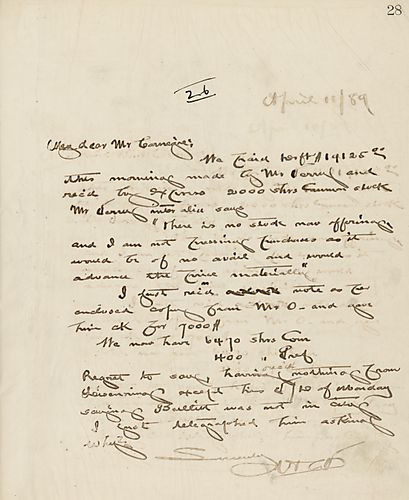 28
April 11/89
My dear Mr Carnegie,
We paid 19125 00
this morning made by Mr and
rec'd by express 2000 shrs common stock
Mr inter alia says
"There is no stock now offering
and I am not pressing purchases as it
would be of no avail and would
advance the price materially"
I just rec'd note as per
enclosed copy from Mr O- and gave
him ck for 7000
We now have 6470 shrs Com
400 " Pref
Regret to say, having rec'd nothing from
except his of Monday
saying Bullitt was not in city
I telegraphed him asking
why
Sincerely